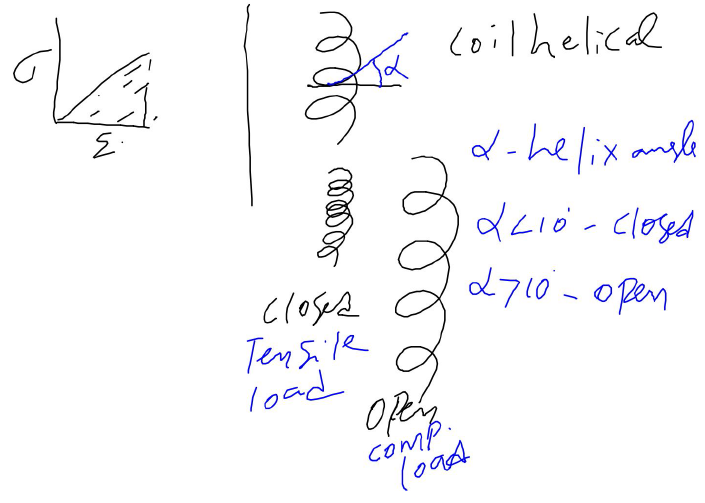 σ
Σ
coil helical
α
α - helix angle
α < 10° - closed
α > 10° - open
closed
Tensile
load
open
comp.
load